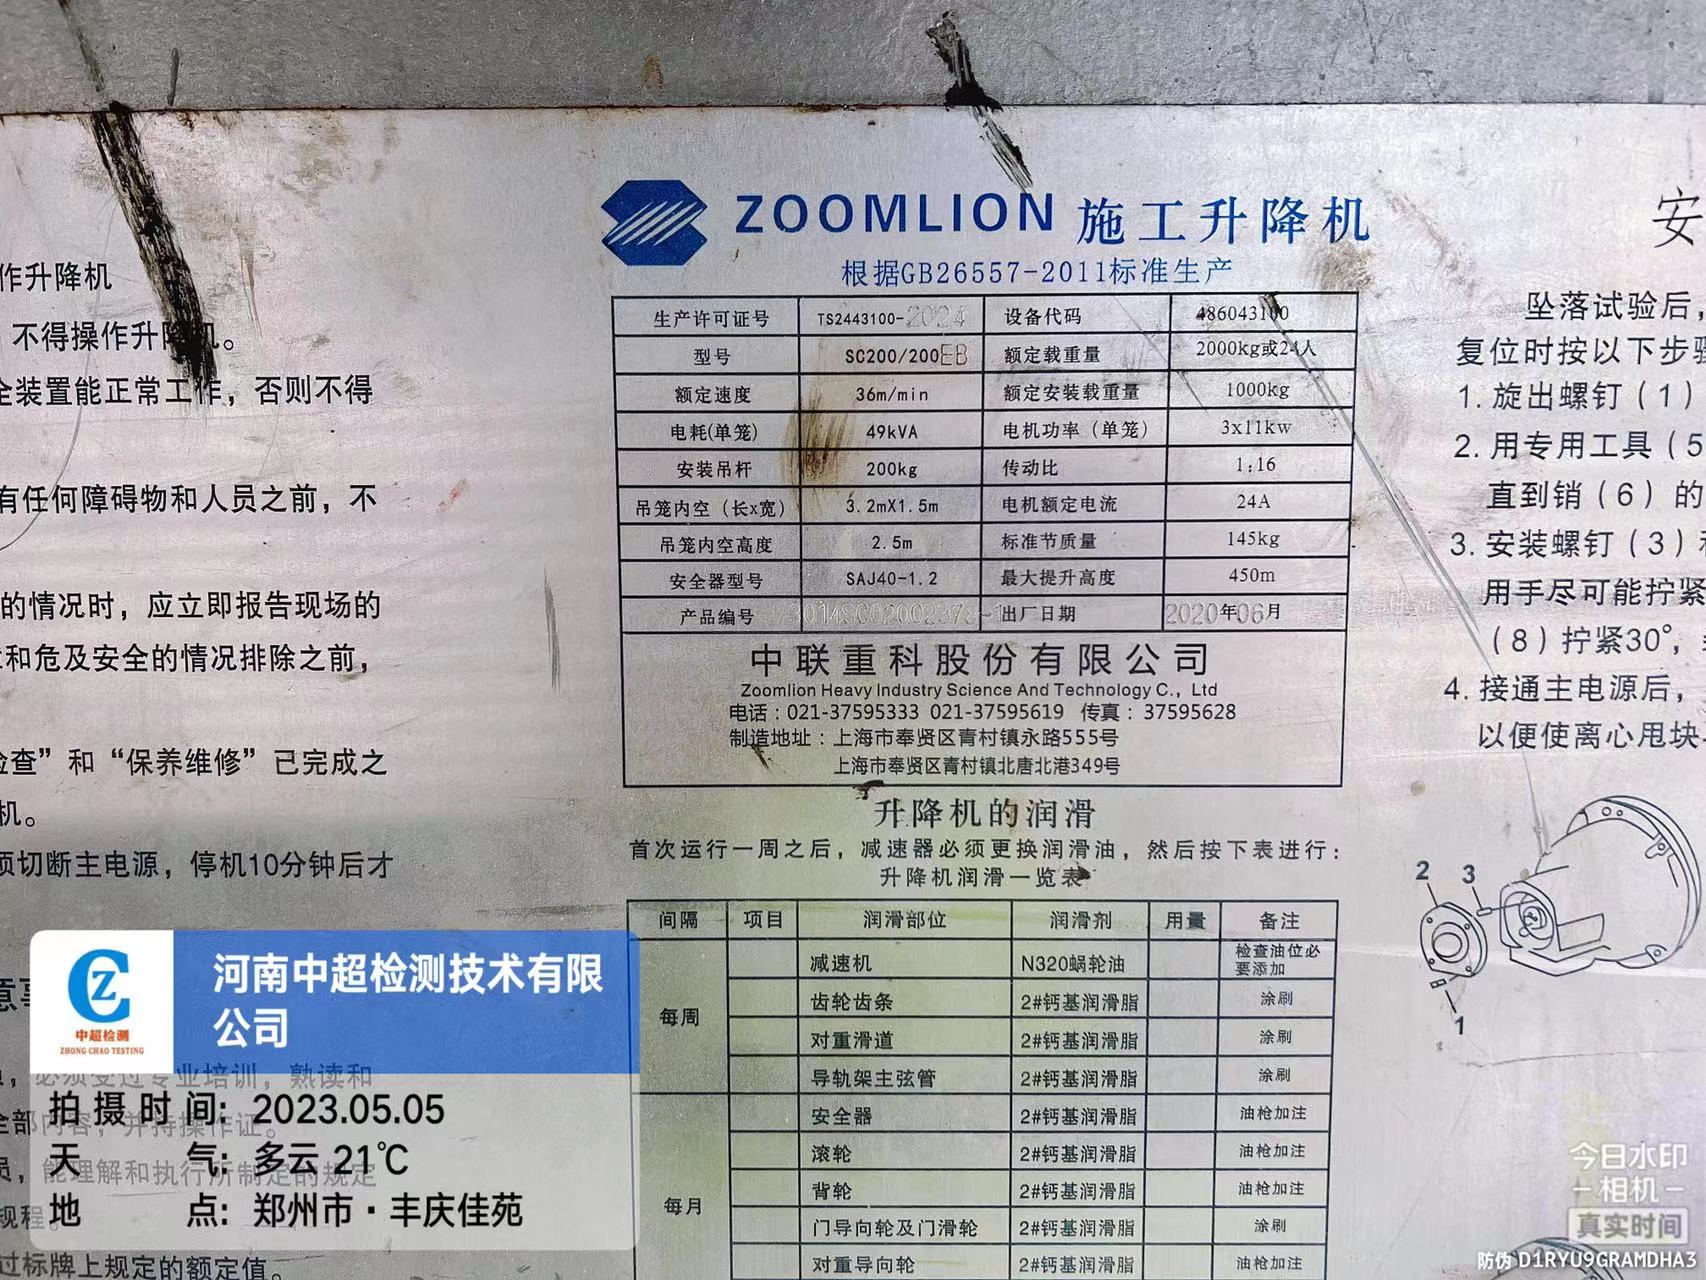 作升降机
不得操作升降机。
全装置能正常工作，否则不得
有任何障碍物和人员之前，不
的情况时，应立即报告现场的
和危及安全的情况排除之前，
检查”和“保养维修”已完成之
机。
须切断主电源，停机10分钟后才
ZOOMLION 施工升降机
根据GB26557-2011标准生产
生产许可证号 TS2443100-2024 设备代码 486043100
型号 SC200/200EB 额定载重量 2000kg或24人
额定速度 36m/min 额定安装载重量 1000kg
电耗(单笼) 49kVA 电机功率（单笼） 3x11kw
安装吊杆 200kg 传动比 1:16
吊笼内空（长x宽） 3.2mX1.5m 电机额定电流 24A
吊笼内空高度 2.5m 标准节质量 145kg
安全器型号 SAJ40-1.2 最大提升高度 450m
产品编号 出厂日期 2020年06月
中联重科股份有限公司
Zoomlion Heavy Industry Science And Technology C., Ltd
电话：021-37595333 021-37595619 传真：37595628
制造地址：上海市奉贤区青村镇永路555号
上海市奉贤区青村镇北唐北港349号
升降机的润滑
首次运行一周之后，减速器必须更换润滑油，然后按下表进行：
升降机润滑一览表
间隔 项目 润滑部位 润滑剂 用量 备注
每周
减速机 N320蜗轮油 检查油位必
要添加
齿轮齿条 2#钙基润滑脂 涂刷
对重滑道 2#钙基润滑脂 涂刷
导轨架主弦管 2#钙基润滑脂 涂刷
每月
安全器 2#钙基润滑脂 油枪加注
滚轮 2#钙基润滑脂 油枪加注
背轮 2#钙基润滑脂 油枪加注
门导向轮及门滑轮 2#钙基润滑脂 涂刷
对重导向轮 2#钙基润滑脂 油枪加注
安
坠落试验后，
复位时按以下步骤
1. 旋出螺钉（1）
2. 用专用工具（5
直到销（6）的
3. 安装螺钉（3）
用手尽可能拧紧
（8）拧紧30°，
4. 接通主电源后，
以便使离心甩块
2
3
1
中超检测
ZHONG CHAO TESTING
河南中超检测技术有限
公司
必须受过专业培训，熟读和
全部内容，并持操作证。
员，能理解和执行所制定的规定
规程。
过标牌上规定的额定值。
拍摄时间: 2023.05.05
天 气: 多云 21℃
地 点: 郑州市·丰庆佳苑
今日水印
相机
真实时间
防伪 D1RYU9GRAMDHA3